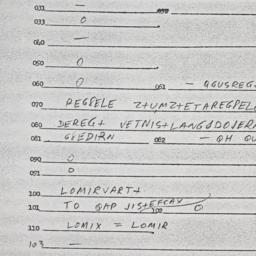 031 —
033 0
040 —
050 0
060 0 061 — QGUSREG
070 REGPELE Z+UMZ+ETAREGPEL
080 DEREG+ VETNIS+LANGDDOJERA
081 GVEDIRN 082 — QH QU
090 0
091 0
100 LOMIRVART+
101 TO QAP JIS+EFCAX 0
110 LOMIX = LOMIR
103 —